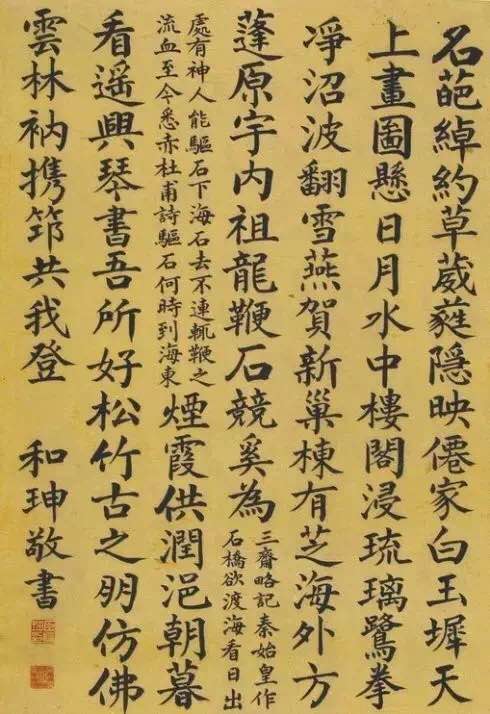 名葩綽約草葳蕤隱映僊家白玉墀天
上畫圖懸日月水中樓閣浸琉璃鷺拳
淨沼波翻雪燕賀新巢棟有芝海外方
蓬原宇内祖龍鞭石競奚為三齊略記秦始皇作
石橋欲渡海看日出
處有神人能驅石下海石去不速輒鞭之
流血至今悉赤杜甫詩驅石何時到海東
煙霞供潤浥朝暮
看遥興琴書吾所好松竹古之朋仿佛
雲林衲携笻共我登
和珅敬書